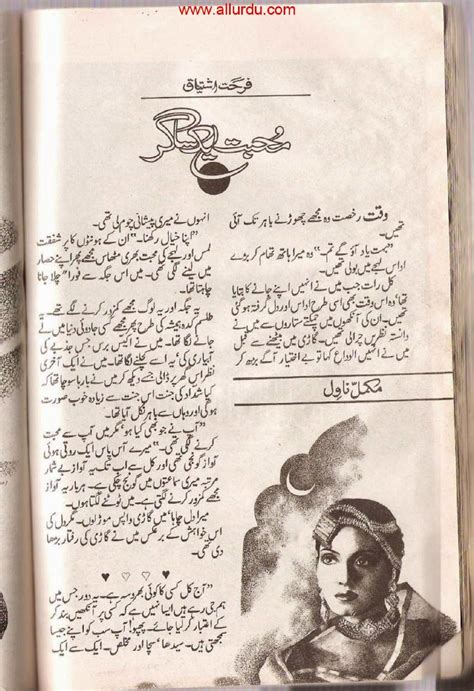 www.allurdu.com
فرحت اشتیاق
محبت ایک ساگر
وقت رخصت وہ مجھے چھوڑنے باہر تک آئی
تھیں۔
"بہت یاد آؤ گے تم۔" وہ میرا ہاتھ تھام کر بڑے
اداس لہجے میں بولی تھیں۔
کل رات جب میں نے انہیں اپنے جانے کا بتایا
تھا' وہ اس وقت بھی اسی طرح اداس اور دل گرفتہ ہو گئی
تھیں۔ ان کی آنکھوں میں چمکتے ستاروں سے میں نے
دانستہ نظریں چرالی تھیں۔ گاڑی میں بیٹھنے سے قبل
میں نے انہیں الوداع کہا تو بے اختیار آگے بڑھ کر
انہوں نے میری پیشانی چوم لی تھی۔
"اپنا خیال رکھنا۔" ان کے ہونٹوں کا پر شفقت
لمس اور لہجے کی محبت بھری مٹھاس مجھے پھر اپنے حصار
میں لینے لگی تھی۔ میں اس جگہ سے فورا" چلا جانا
چاہتا تھا۔
یہ جگہ اور یہ لوگ مجھے کمزور کرنے لگے تھے۔ یہ
طلسم کدہ ہمیشہ کی طرح پھر مجھے کسی جادوئی دنیا میں
لے جانے لگا تھا۔ میں نے اکیس برس جس جذبے کی
آبیاری کی تھی' یہ اسے مٹانے لگا تھا۔ میں نے ایک آخری
نظر اس گھر پر ڈالی جسے دیکھ کر میں نے ہر بار یہ سوچا تھا کہ
کیا شداد کی جنت اس جنت سے زیادہ خوب صورت
ہوگی اور وہاں سے باہر نکل آیا تھا۔
"آپ نے جو بھی کیا ہو' مگر میں آپ سے محبت
کرنے لگی تھی۔" میرے آس پاس ایک روتی ہوئی
آواز گونجی تھی اور کل سے اب تک یہ آواز بے شمار
مرتبہ میری سماعتوں میں گونج چکی ہے۔ ہر بار یہ آواز
مجھے کمزور کرنے لگتی ہے۔ میں ٹوٹنے لگتا ہوں۔
میرا دل چاہا' میں گاڑی واپس موڑ لوں۔ مگر دل کی
اس خواہش کے برعکس میں نے گاڑی کی رفتار بڑھا
دی تھی۔
♥ ♥ ♥ ♥
"آج کل کسی کا کوئی بھروسہ ہے۔ یہ دور جس میں
ہم جی رہے ہیں ایسا نہیں ہے کہ کسی پر آنکھیں بند کر
کے اعتبار کر لیا جائے۔ پھپو! آپ سب کو اپنے جیسا
سمجھتی ہیں۔ سیدھا' سچا اور مخلص۔ ایک سے ایک
مکمل ناول